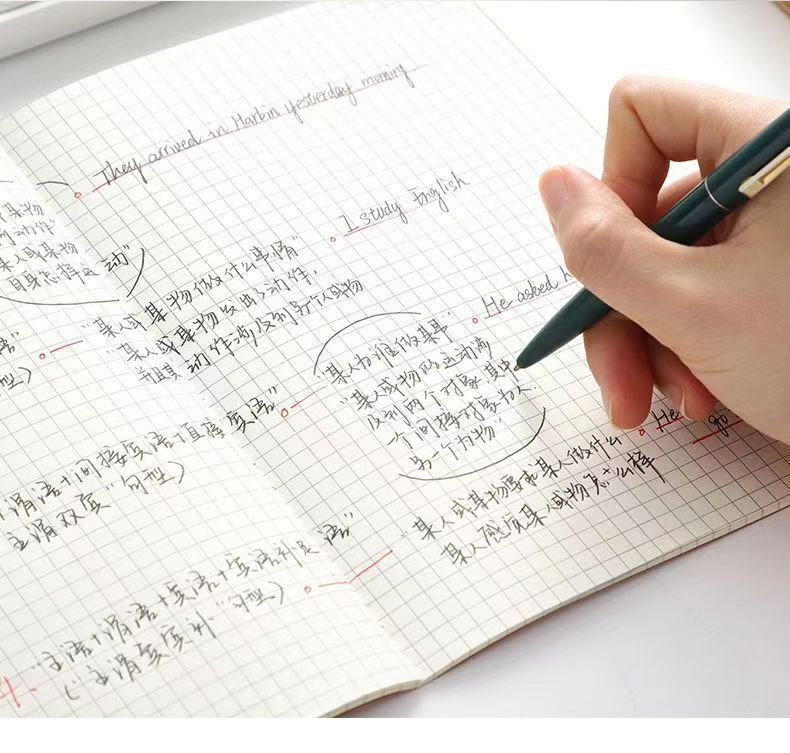 They arrived in Harbin yesterday morning
I study English
某物
动作"
某人或某物
自身怎样运动"
"某人或某物做什么事情"
"某人或某物发出动作,
并且其动作涉及到另个人或物
He asked h
"某人为谁做某事"
"某人或物的运动涉
及到两个对象,其中
一个间接对象为人,
另一个为物"
语"
型)
谓语+间接宾语+直接宾语"
主谓双宾"句型)
He
go
"某人或某物要求某人做什么
某人感觉某人或物怎么样
4.
"主语+谓语+宾语+宾语补足语"
("主谓宾宾补"句型)